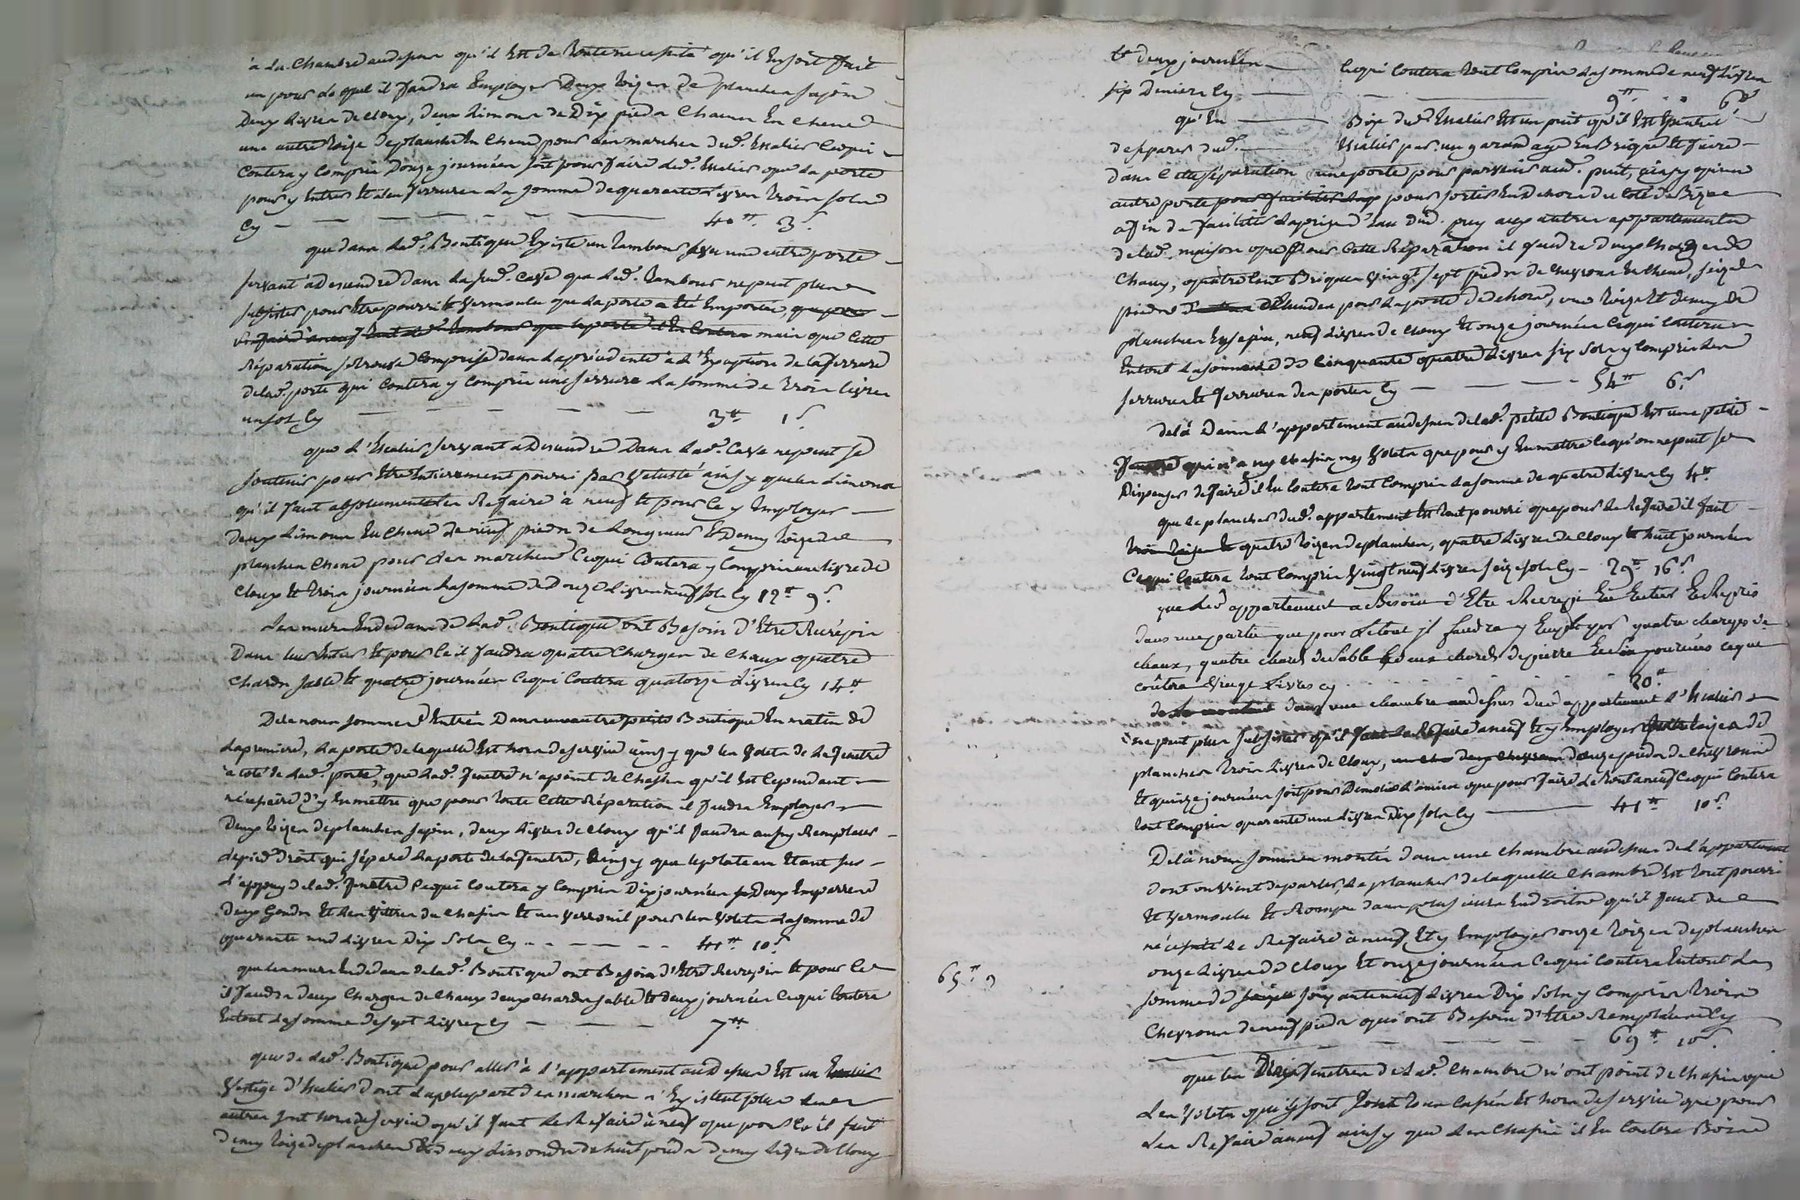 à la Chambre audessus qu'il Est de toute necessité qu'il En soit fait
un pour lequel il faudra Employer Deux toizes de planches sapin
Deux Livres de Cloux, deux Limons de Dix pieds Chacun En Chene
une autre toize de planches En Chene pour les marches dud. Escalier Cequi
Coutera y Compris Douze journées soit pour faire led. Escalier que la porte
pour y Entrer et les ferrures La somme de quarante Livres trois sols
Cy 40# 3s
que dans lad. Boutique Existe un tambour avec une autre porte
servant à Descendre dans la sud. Cave que led. tambour ne peut plus
subsister pour Etre pourri et Vermoulu que la porte a été Emportée,
mais que Cette
Réparation se trouve Comprise dans la précédente à l'Exception de la serrure
de lad. porte qui Coutera y Compris une serrure La somme de trois livres
un sol Cy 3# 1s
que L'Escalier servant à Descendre Dans lad. Cave ne peut se
soutenir pour Etre Entierement pourri par Vetusté ainsy que les Limons
qu'il faut absolument les Refaire à neuf et pour Ce y Employer
deux Limons En Chene de neuf pieds de Longueur Et Demy toize de
planches Chene pour les marches Cequi Coutera y Compris une livre de
Cloux Et trois journées La somme de Douze Livres neuf sols Cy 12# 9s
Les murs En dedans de Lad. Boutique ont Besoin d'Etre Recrépis
Dans leur Entier Et pour Ce il faudra quatre Charges de Chaux quatre
Chards sable Et quatre journées Cequi Coutera quatorze Livres Cy 14#
Dela nous sommes Entrés Dans une autre petite Boutique En matin de
la premiere, La porte de laquelle Est hors de service ainsy que les Volets de la fenetre
à Coté de lad. porte, que lad. fenetre n'a point de Chassis qu'il Est Cependant
nécessaire d'y En mettre que pour toute Cette Réparation il faudra Employer
Deux toizes de planches sapin, deux Livres de Cloux qu'il faudra aussy Remplacer
le pied droit qui sépare la porte de la fenetre, ainsy que le plateau Etant sur
l'appuy de lad. fenetre Cequi Coutera y Compris Dix journées
deux Gonds Et les Vittres du Chassis Et un Verrouil pour les Volets La somme de
quarante une Livres Dix sols Cy 41# 10s
que les murs En dedans de lad. Boutique ont Besoin d'Etre Recrepis Et pour Ce
il faudra deux Charges de Chaux deux Chards sable Et deux journées Cequi Coutera
En tout La somme de sept Livres Cy 7#
que de Lad. Boutique pour aller à l'appartement au dessus Est un
Vestige d'Escalier dont la plupart des marches n'Existent plus Les
autres sont hors de service qu'il faut Le Refaire à neuf que pour Ce il faut
demy toize de planches Et deux Limons de huit pieds Demy Livre de Cloux
Et deux journées Cequi Coutera tout Compris La somme de neuf Livres
six Deniers Cy 9# 6d
qu'En Bize dud. Escalier Est un puit qu'il Est
de separer dud. Escalier par un garam age En Brique Et faire
dans Cette séparation une porte pour parvenir aud. puit, ainsy qu'une
autre porte pour sortir En dehors du Coté de Bize
afin de faciliter la prise d'Eau dud. puy aux autres appartements
de lad. maison que pour Cette Réparation il faudra deux Charges de
Chaux, quatre Cent Briques Vingt sept pieds de Chevrons En Chene, seize
pieds pour la porte De dehors, une toize Et demy de
planches En sapin, neuf Livres de Cloux Et onze journées Cequi Coutera
En tout La somme de Cinquante quatre Livres six sols y Compris les
serrures Et ferrures des portes Cy 54# 6s
dela Dans L'appartement au dessus de lad. petite Boutique Est une petite
fenetre qui n'a ny Chassis ny Volets que pour y En mettre Cequ'on ne peut se
Dispenser de faire il En Coutera tout Compris La somme de quatre Livres Cy 4#
que Le plancher dud. appartement Est tout pourri que pour Le Refaire il faut
quatre toizes de planches, quatre Livres de Cloux Et huit journées
Cequi Coutera tout Compris Vingt neuf Livres seize sols Cy 29# 16s
que led appartement a Besoin d'Etre Recrepi En Entier Et Repris
dans une partie que pour Le tout il faudra y Employer quatre charges de
chaux, quatre chards de sable deux chards de pierre Et six journées ce que
coûtera vingt Livres cy 20#
dans une chambre au dessus dud appartement L'Escalier
ne peut plus subsister qu'il faut Le Refaire à neuf Et y Employer toizes de
planches trois Livres de Cloux, douze pieds de Chevrons
Et quinze journées soit pour Démolir L'ancien que pour faire Le tout à neuf Cequi Coutera
tout Compris quarante une Livres Dix sols Cy 41# 10s
Dela nous sommes montés dans une Chambre au dessus de L'appartement
dont on Vient de parler, Le plancher de laquelle Chambre Est tout pourri
Et Vermoulu Et Rompu dans plusieurs Endroits qu'il faut de
nécessité Le Refaire à neuf Et y Employer onze toizes de planches
onze Livres de Cloux Et onze journées Cequi Coutera En tout La
somme de soixante neuf Livres Dix sols y Compris trois
Chevrons de neuf pieds qui ont Besoin d'Etre Remplacés Cy
69# 10s
69#
que les fenetres de Lad. Chambre n'ont point de Chassis que
Les Volets qu'il y ont sont tous Cassés Et hors de service que pour
Les Refaire à neuf ainsy que Les Chassis il En Coutera